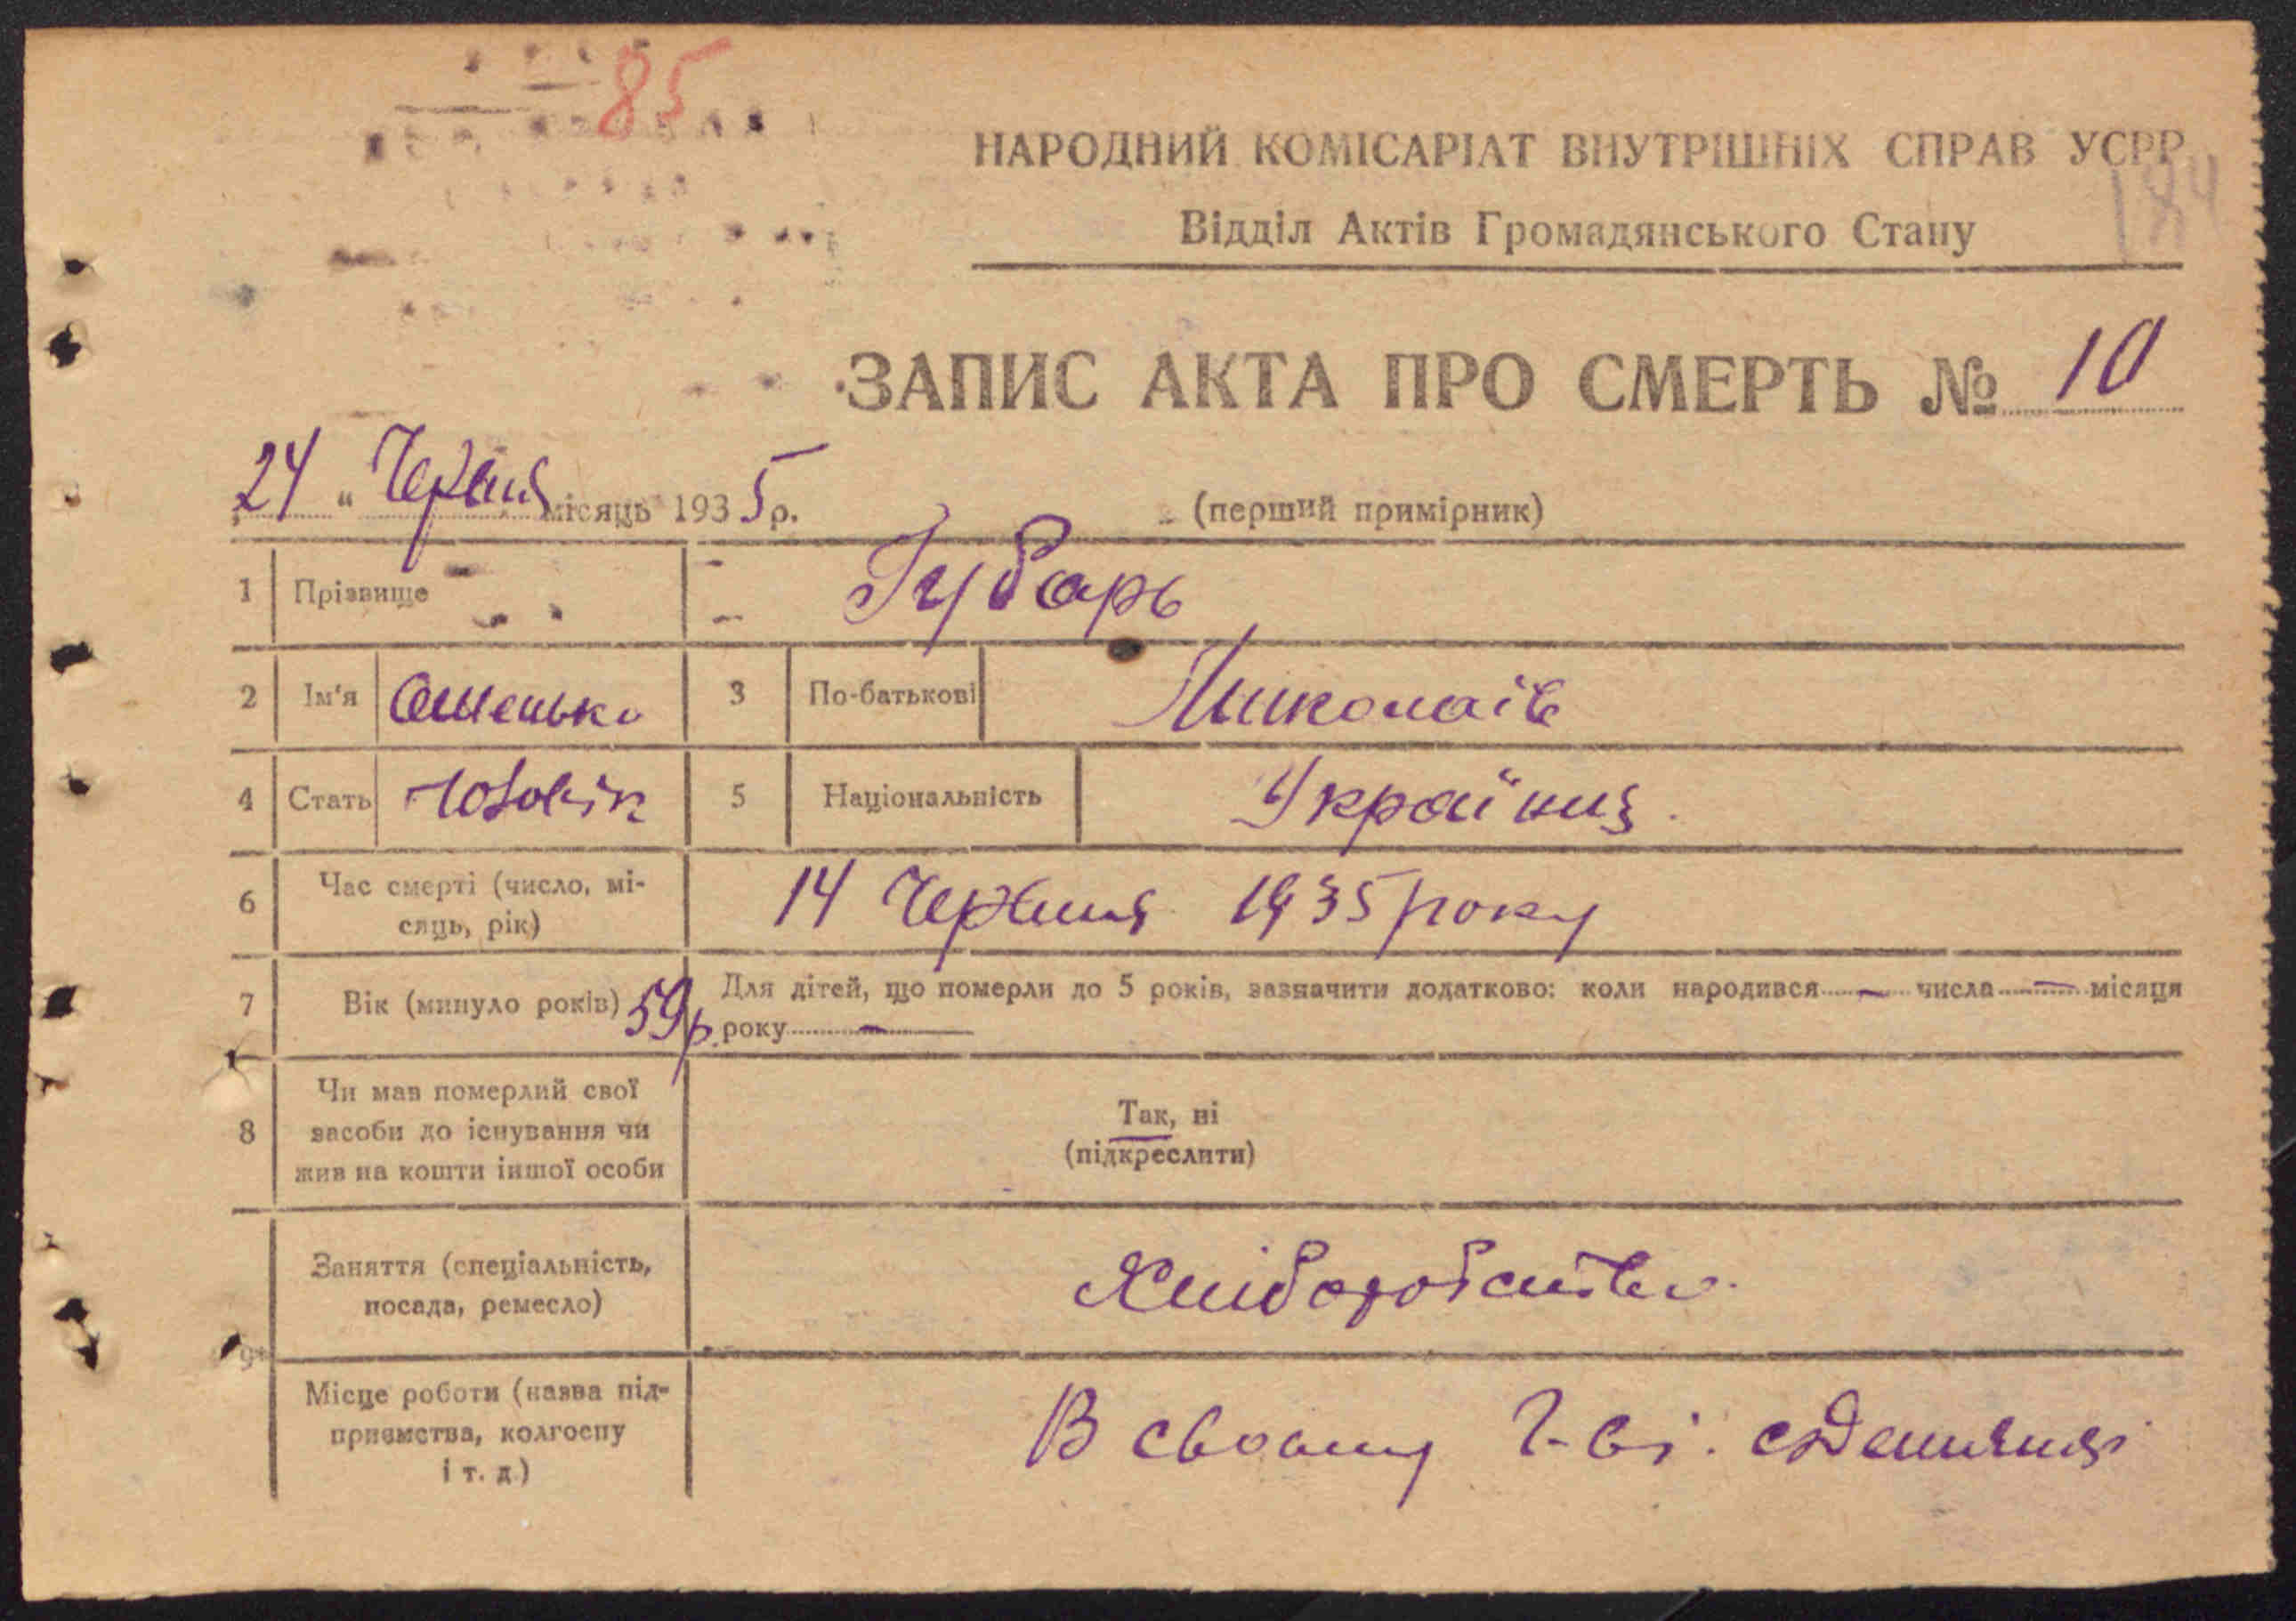 85
НАРОДНИЙ КОМІСАРІАТ ВНУТРІШНІХ СПРАВ УСРР
184
Відділ Актів Громадянського Стану
ЗАПИС АКТА ПРО СМЕРТЬ № 10
24 " Червня місяць 1935 р. (перший примірник)
1 Прізвище Губарь
2 Ім'я Омелько 3 По-батькові Миколаїв
4 Стать Чоловік 5 Національність Українц.
6 Час смерті (число, мі-
сяць, рік) 14 Червня 1935 року
7 Вік (минуло років) 59 р. Для дітей, що померли до 5 років, зазначити додатково: коли народився — числа — місяця
року —
8 Чи мав померлий свої
засоби до існування чи
жив на кошти іншої особи
Так, ні
(підкреслити)
9 Заняття (спеціальність,
посада, ремесло) Хліборобство.
Місце роботи (назва під-
приємства, колгоспу
і т. д.) В своому г-ві.